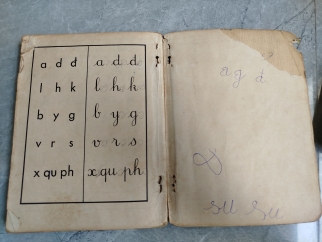 a d d a d d
l h k l h k
b y g b y g
v r s v r s
x qu ph x qu ph
a g d